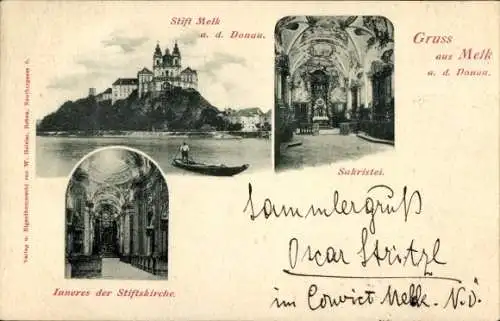 Stift Melk
a. d. Donau.
Gruss
aus Melk
a. d. Donau.
Sakristei.
Inneres der Stiftskirche.
Sammlergruß
Oscar Stritzl
im Convict Melk. N.Ö.
Verlag u. Eigenthumsrecht von W.